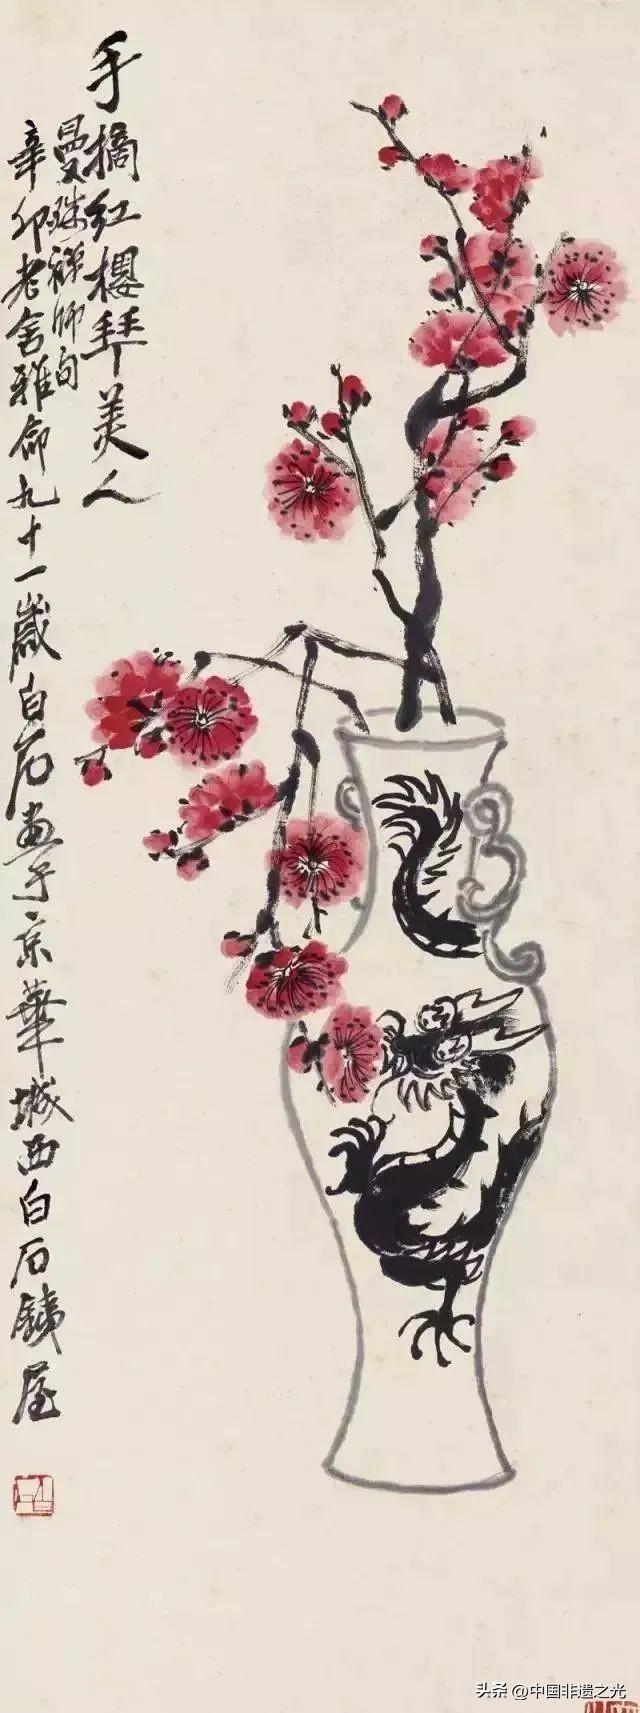 手摘红樱拜美人
曼殊禅师句
辛卯老舍雅命九十一岁白石画于京華城西白石鐵屋
头条 @中国非遗之光